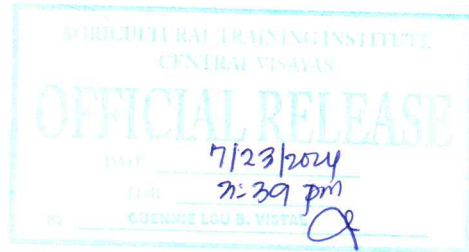 AGRICULTURAL TRAINING INSTITUTE
CENTRAL VISAYAS
OFFICIAL RELEASE
DATE: 7/23/2024
:39 pm
BY: GUENNIE LOU B.